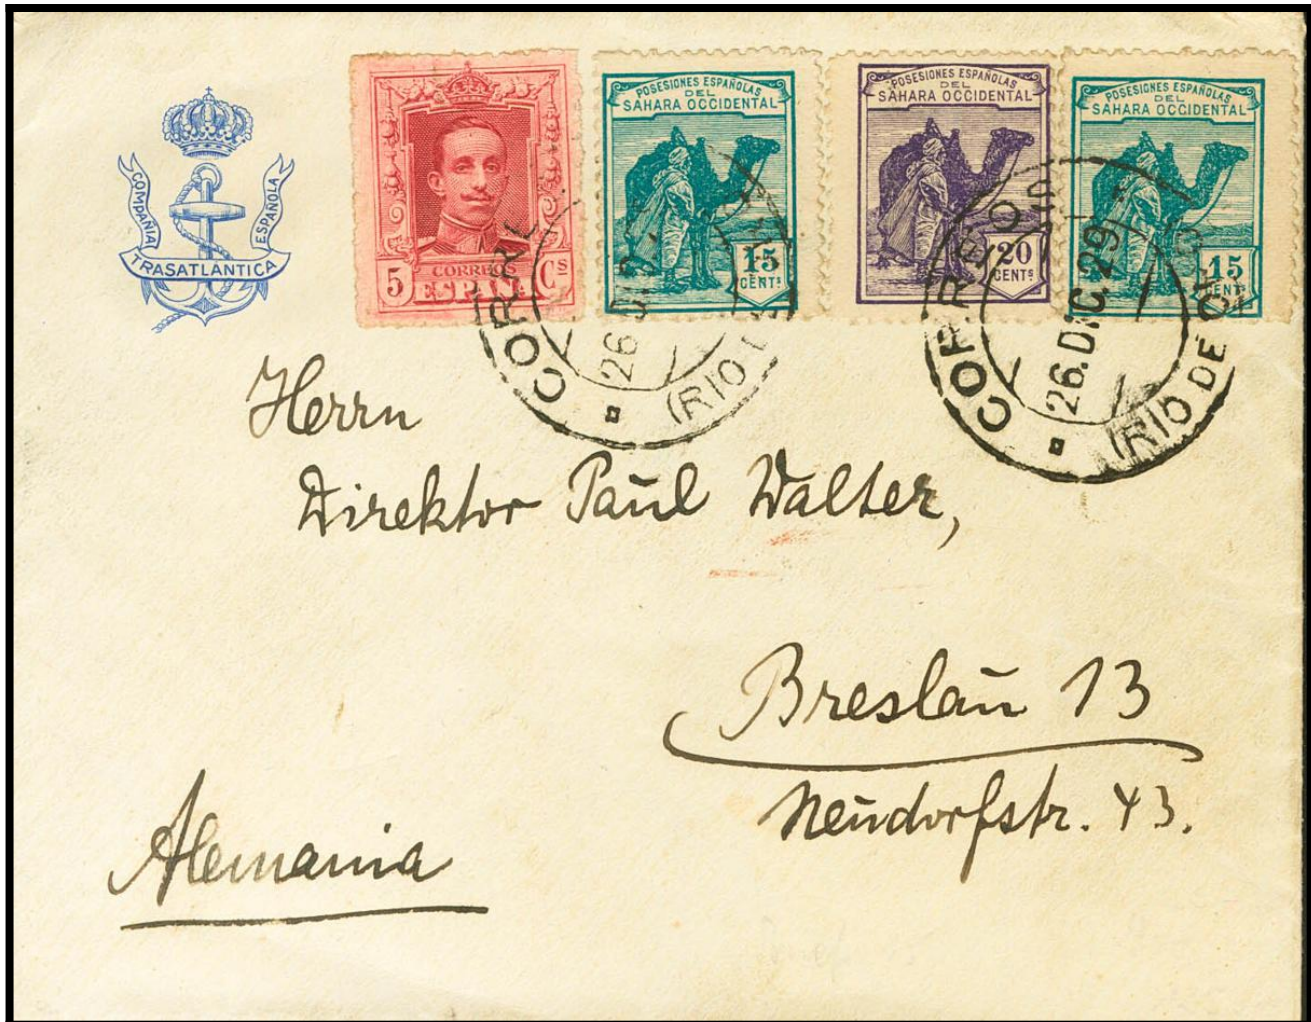 COMPAÑIA TRASATLANTICA ESPAÑOLA
5 CORREOS Cs
ESPAÑA
POSESIONES ESPAÑOLAS
DEL
SAHARA OCCIDENTAL
15
CENTS
POSESIONES ESPAÑOLAS
DEL
SAHARA OCCIDENTAL
20
CENTS
POSESIONES ESPAÑOLAS
DEL
SAHARA OCCIDENTAL
15
CENTS
26.DIC.29
(RIO DE
Herrn
Direktor Paul Walter,
Breslau 13
Neudorfstr. 43.
Alemania